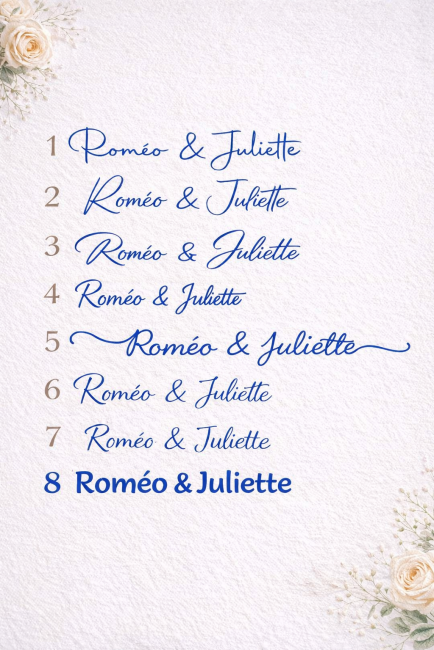 1 Roméo & Juliette
2 Roméo & Juliette
3 Roméo & Juliette
4 Roméo & Juliette
5 Roméo & Juliette
6 Roméo & Juliette
7 Roméo & Juliette
8 Roméo & Juliette